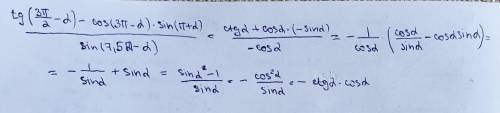 tg(3π/2 - α) - cos(3π - α) · sin(π + α) / sin(7,5π - α) = ctgα + cosα · (-sinα) / -cosα = - 1/cosα (cosα/sinα - cosα sinα) =
= - 1/sinα + sinα = sinα² - 1 / sinα = - cos²α / sinα = - ctgα · cosα